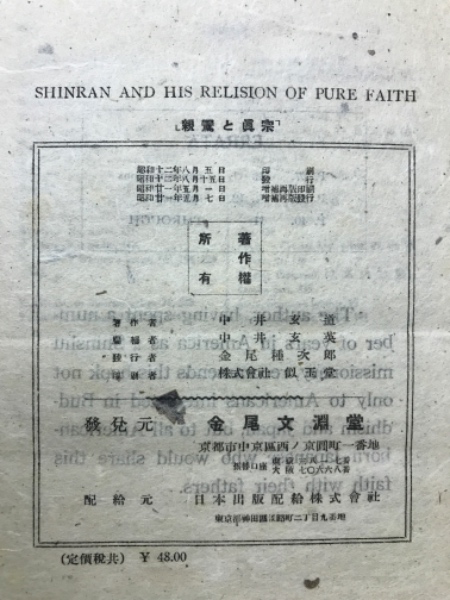 SHINRAN AND HIS RELISION OF PURE FAITH
「親鸞と眞宗」
昭和十二年八月五日 印刷
昭和十二年八月十五日 發行
昭和廿一年五月一日 增補再版印刷
昭和廿一年五月七日 增補再版發行
著作權
所有
著作者 中井玄道
中井玄英
發行者 金尾種次郎
印刷者 株式會社 似玉堂
發兌元 金尾文淵堂
京都市中京區西ノ京圓町一番地
配給元 日本出版配給株式會社
東京都神田區淡路町二丁目九番地
(定價稅共) ¥ 48.00